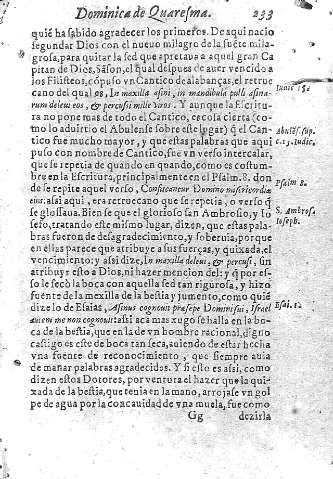 Dominica de Quaresma. 233
quiē ha sabido agradecer los primeros. De aqui nacio
segundar Dios con el nueuo milagro de la fuēte mila-
grosa, para quitar la sed que apretaua a aquel gran Ca
pitan de Dios, Sāson, el qual despues de auer vencido a
los Filisteos, cōpuso vn Cantico de alabanças, el retrue
cano del qual es, In maxilla asini, in mandibula pulli asina- Iudic. 15.
rum deleui eos, & percussi mille viros. Y aunque la Escritu
ra no pone mas de todo el Cantico, es cosa cierta (co-
mo lo aduirtio el Abulense sobre este lugar) q̃ el Can- Abulēs. sup.
tico fue mucho mayor, y que estas palabras que aqui c. 15. Iudic.
puso con nombre de Cantico, fue vn verso intercalar,
que se repetia de quando en quando, como es costum-
bre en la Escritura, principalmente en el Psalm. 8. don Psalm. 8.
de se repite aquel verso, Confiteantur Domino misericordiæ
eius: assi aqui, era retruecano que se repetia, o verso q̃
se glossaua. Bien se que el glorioso san Ambrosio, y Io S. Ambros.
sefo, tratando este mismo lugar, dizen, que estas pala- Ioseph.
bras fueron de desagradecimiento, y soberuia, porque
en ellas parece que atribuye a sus fuerças, y quixada el
vencimiento: y assi dize, In maxilla deleui, & percussi, sin
atribuyr esto a Dios, ni hazer mencion del: y q̃ por es-
so le secò la boca con aquella sed tan rigurosa, y hizo
fuente de la mexilla de la bestia y jumento, como quiē
dize lo de Esaias, Asinus cognouit præsepe Domini sui, Israel Esai. 1.
autem me non cognouit: assi aca mas xugo se halla en la bo-
ca de la bestia, que en la de vn hombre racional, digno
castigo es este de boca tan seca, auiendo de estar hecha
vna fuente de reconocimiento, que siempre auia
de manar palabras agradecidas. Y si esto es assi, como
dizen estos Dotores, por ventura el hazer que la qui-
xada de la bestia, que tenia en la mano, arrojasse vn gol
pe de agua por la concauidad de vna muela, fue como
Gg dezirla